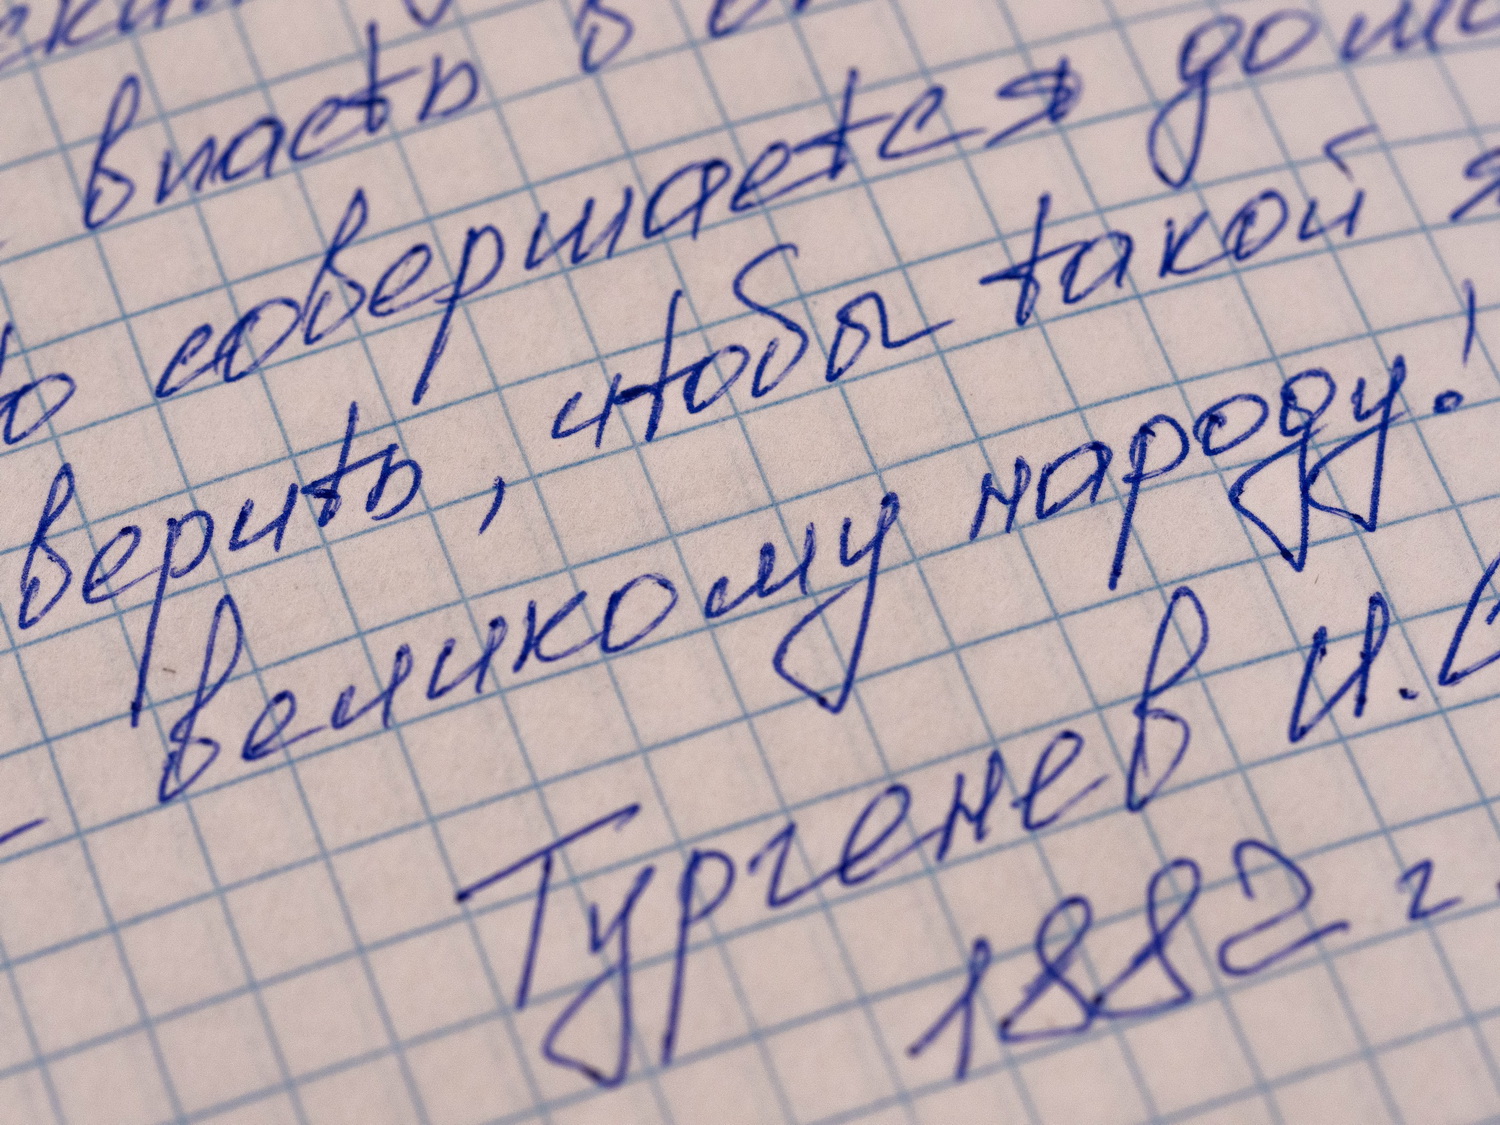 впасть в
совершается дома
верить, чтобы такой
великому народу!
Тургенев И.С
1882 г.